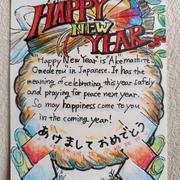 HAPPY
NEW
YEAR
"Happy New Year" is "Akemashite
Omedetou" in Japanese. It has the
meaning of celebrating this year safely
and praying for peace next year.
So may happiness come to you
in the coming year!
あけましておめでとう